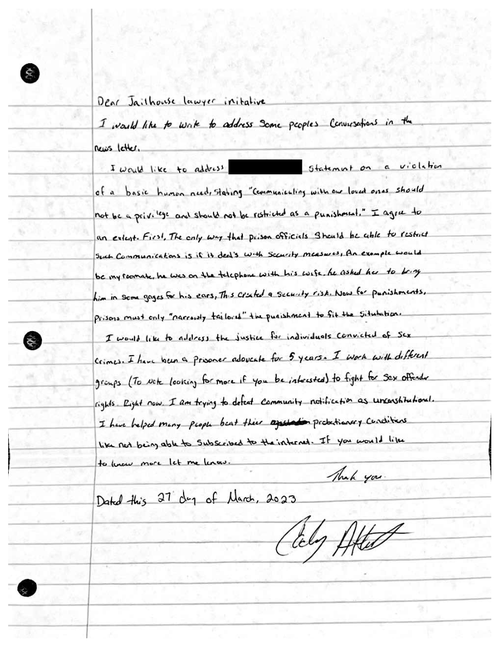 Dear Jailhouse lawyer initative
I would like to write to address Some peoples Conversations in the
news letter.
I would like to address Statement on a violation
of a basic human need, stating "Communicating with our loved ones should
not be a privilege and should not be restricted as a punishment." I agree to
an extent. First, The only way that prison officials Should be able to restrict
Such Communications is if it deal's with Security measures, An example would
be my roomate, he was on the telephone with his wife, he asked her to bring
him in some gages for his ears, This created a Security risk. Now for punishments,
Prisons must only "narrowly tailored" the punishment to fit the Situtation.
I would like to address the justice for individuals Convicted of Sex
Crimes. I have been a prisoner advocate for 5 years. I work with different
groups (To note looking for more if you be interested) to fight for Sex offender
rights. Right now I am trying to defeat Community notification as unconstitutional.
I have helped many people beat thier probationary Conditions
like not being able to Subscribed to the internet. If you would like
to know more let me know.
Thank you
Dated this 27 day of March, 2023